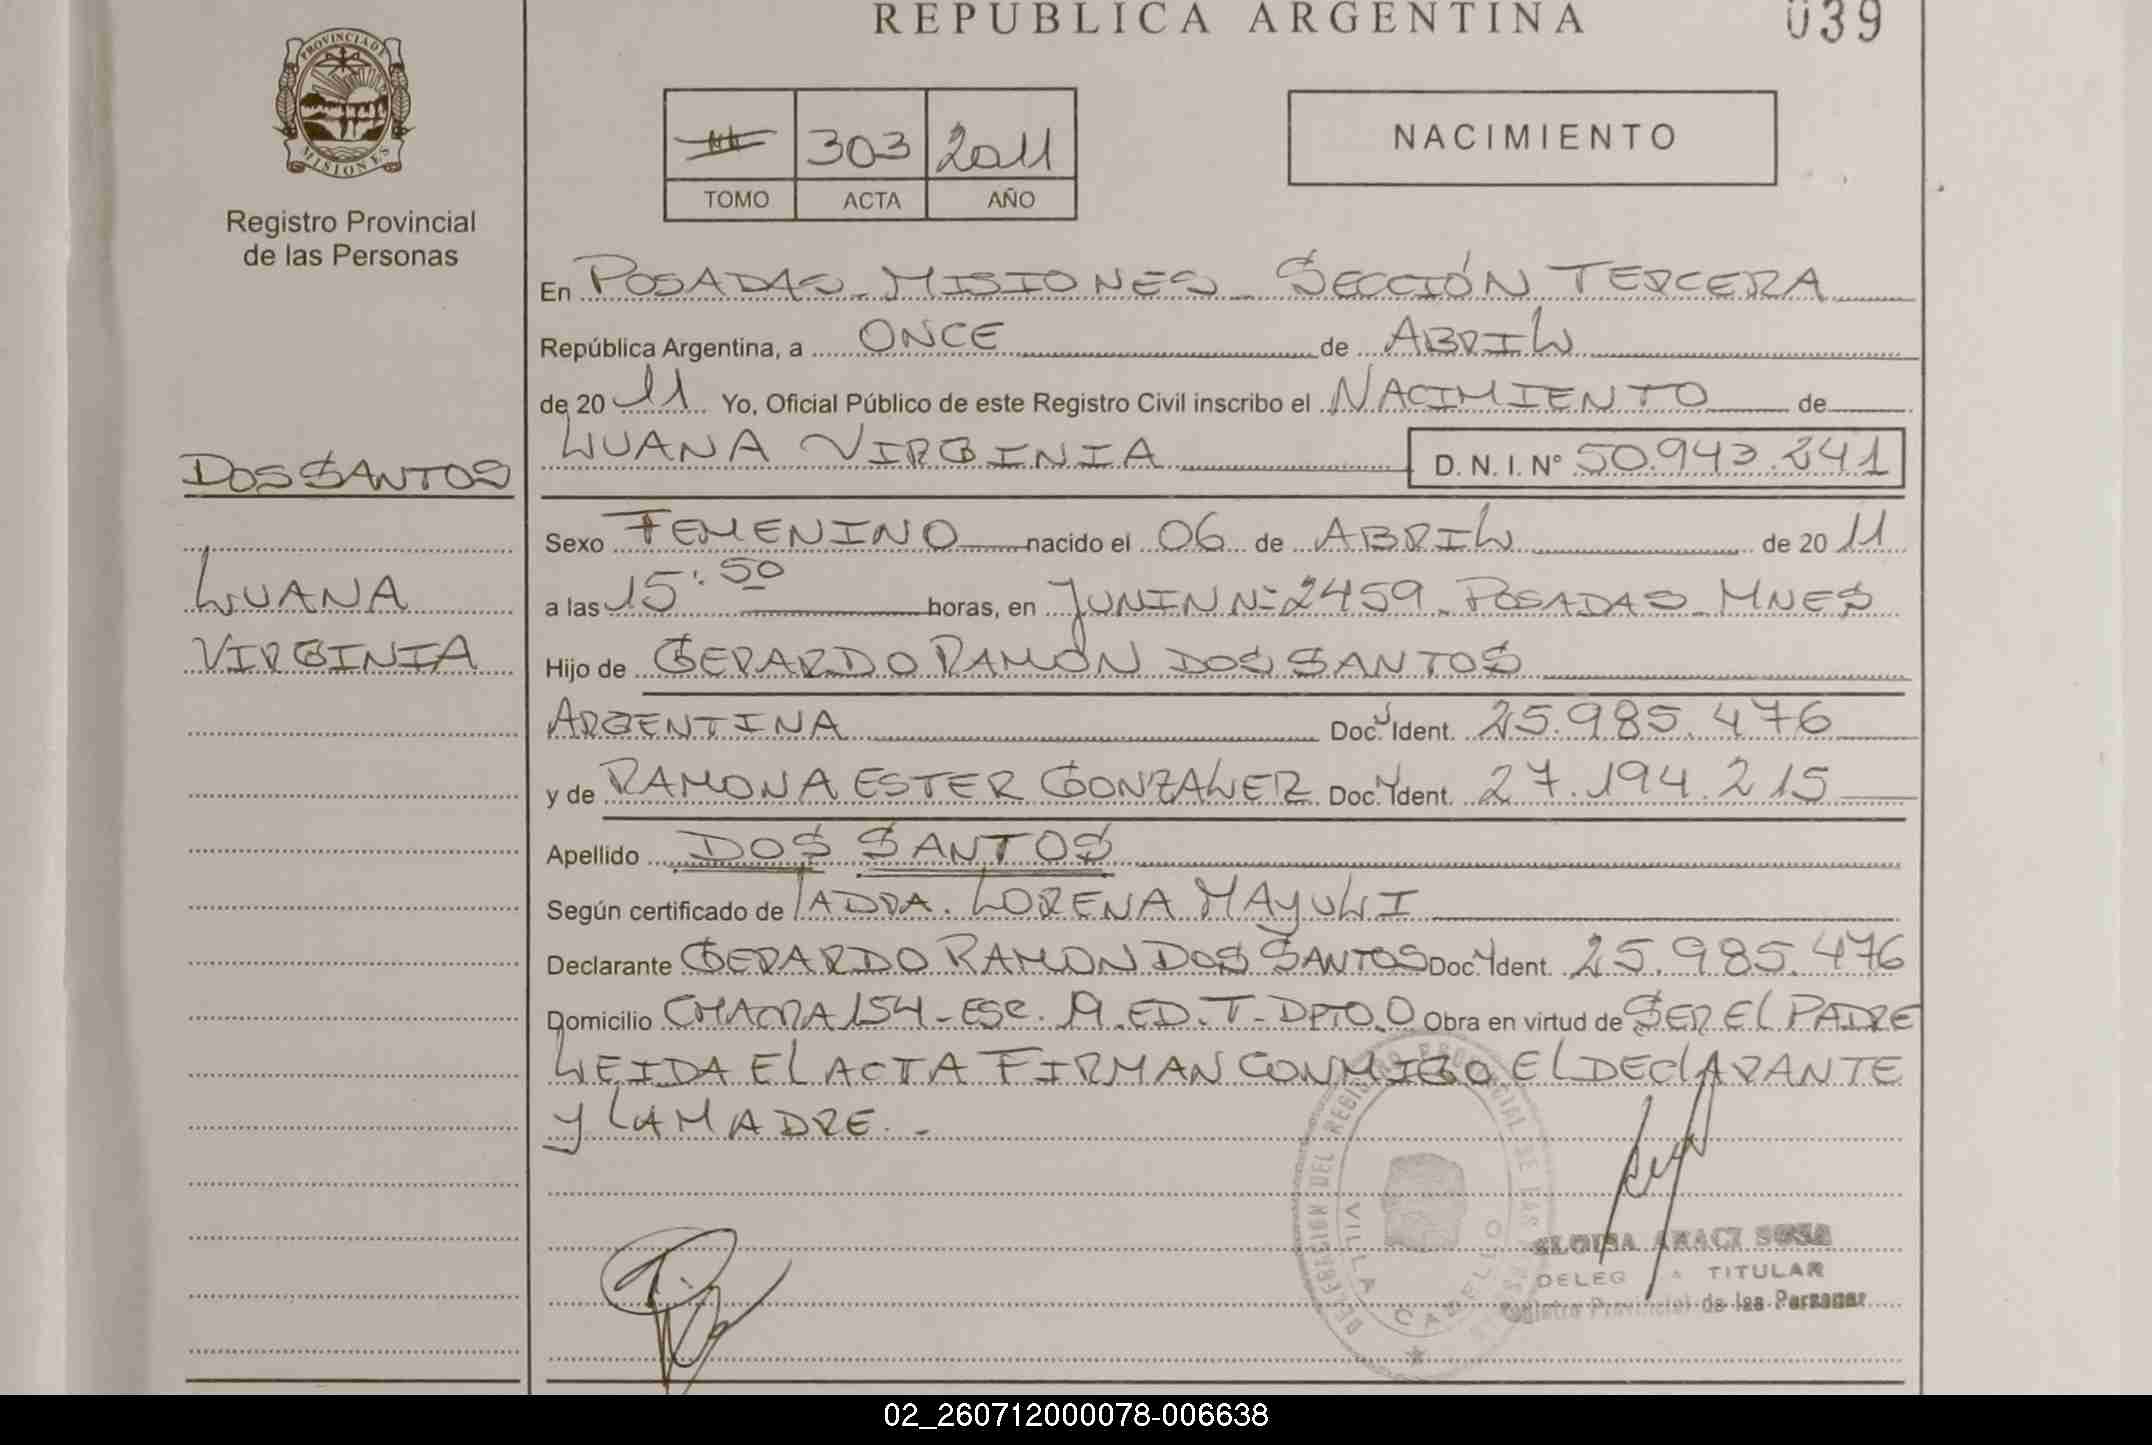 REPUBLICA ARGENTINA
039
PROVINCIA DE MISIONES
Registro Provincial
de las Personas
303 2011
TOMO ACTA AÑO
NACIMIENTO
En POSADAS - MISIONES - SECCIÓN TERCERA
República Argentina, a ONCE de ABRIL
de 20 11 Yo, Oficial Público de este Registro Civil inscribo el NACIMIENTO de
LUANA VIRGINIA D. N. I. N° 50.943.241
DOS SANTOS
LUANA
VIRGINIA
Sexo FEMENINO nacido el 06 de ABRIL de 20 11
a las 15:50 horas, en JUNIN Nº 2459 - POSADAS - MNES
Hijo de GERARDO RAMÓN DOS SANTOS
ARGENTINA Doc. y Ident. 25.985.476
y de RAMONA ESTER GONZALEZ Doc. y Ident. 27.194.215
Apellido DOS SANTOS
Según certificado de LORENA MAYULI
Declarante GERARDO RAMON DOS SANTOS Doc. y Ident. 25.985.476
Domicilio CHACRA 154 - ESC. 19. ED. T - DPTO. O Obra en virtud de SER EL PADRE
LEIDA EL ACTA FIRMAN CONMIGO EL DECLARANTE
Y LA MADRE. -
VILLA CABELLO
SOSA
TITULAR
Registro Provincial de las Personas
02_260712000078-006638